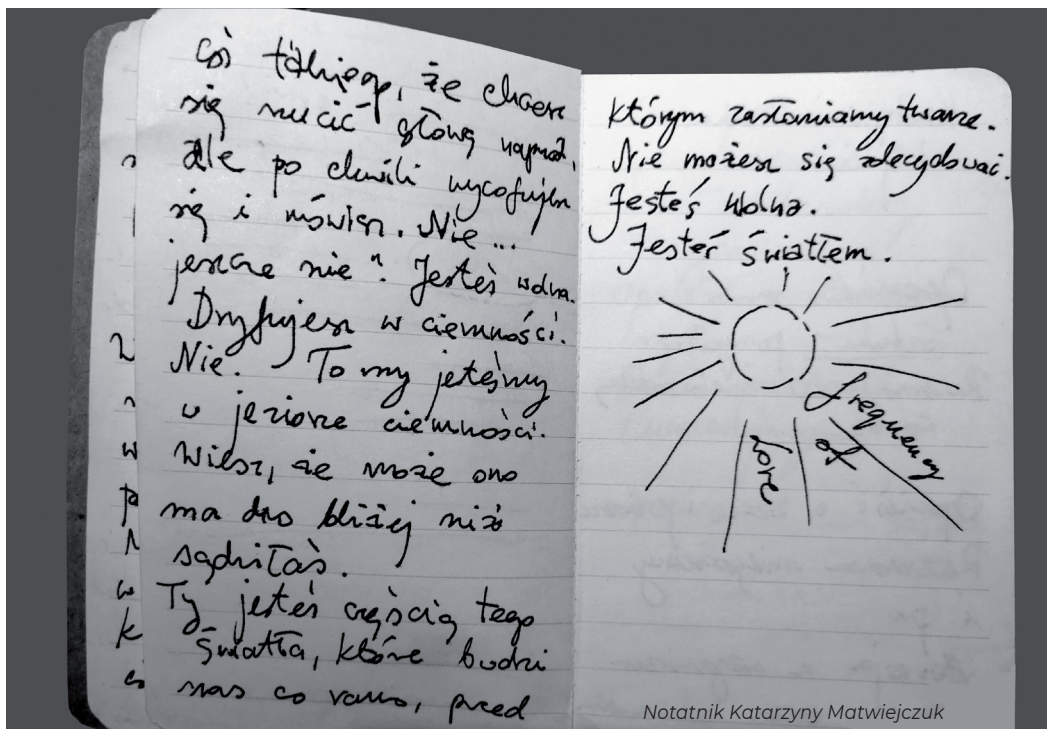 coś takiego, że chcesz
się rzucić głową naprzód,
ale po chwili wycofujesz
się i mówisz. Nie...
jeszcze nie". Jesteś wolna.
Dryfujesz w ciemności.
Nie. To my jesteśmy
w jeziorze ciemności.
Wiesz, że może ono
ma dno bliżej niż
sądziłaś.
Ty jesteś częścią tego
światła, które budzi
nas co rano, przed
którym zasłaniamy twarze.
Nie możesz się zdecydować.
Jesteś wolna.
Jesteś światłem.
frequency
of
love
Notatnik Katarzyny Matwiejczuk